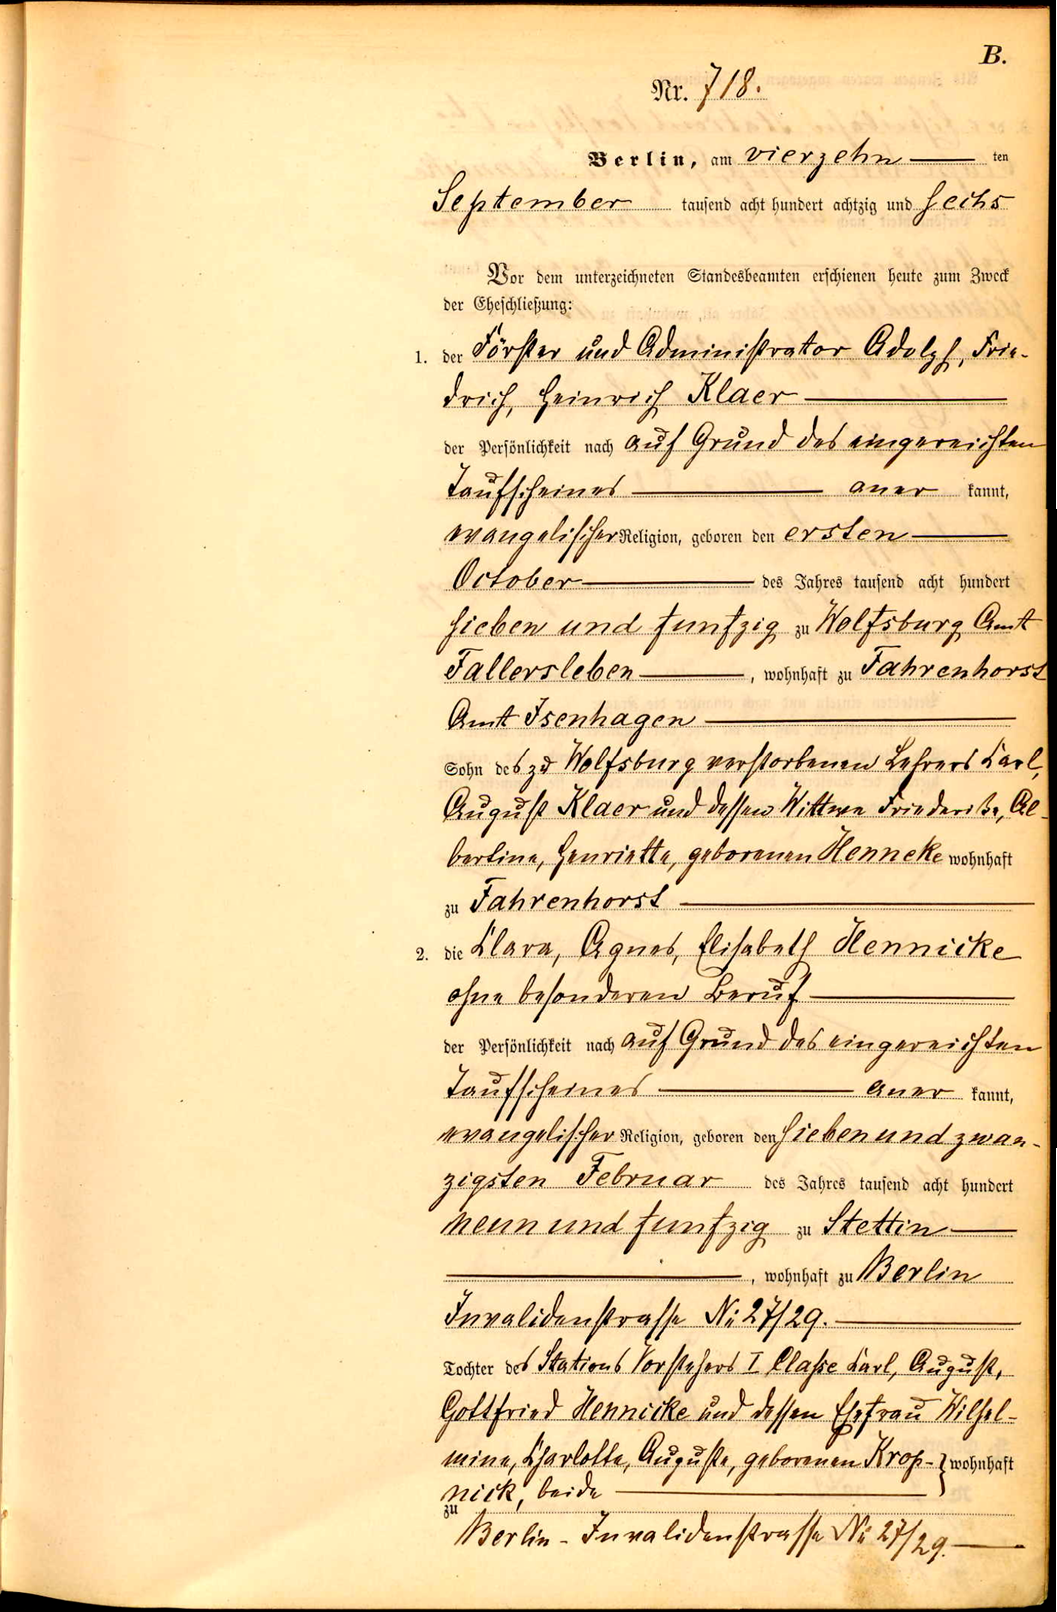 B.
Nr. 718.
Berlin, am vierzehn ten
September tausend acht hundert achtzig und sechs
Vor dem unterzeichneten Standesbeamten erschienen heute zum Zweck
der Eheschließung:
1. der Förster und Administrator Adolph, Frie-
drich, Heinrich Klaer
der Persönlichkeit nach auf Grund des eingereichten
Taufscheines aner kannt,
evangelischer Religion, geboren den ersten
October des Jahres tausend acht hundert
sieben und funfzig zu Wolfsburg Amt
Fallersleben, wohnhaft zu Fahrenhorst
Amt Isenhagen
Sohn des zu Wolfsburg verstorbenen Lehrers Karl,
August Klaer und dessen Wittwe Friederike, Al-
bertine, Henriette, geborenen Henneke wohnhaft
zu Fahrenhorst
2. die Clara, Agnes, Elisabeth Hennicke
ohne besonderen Beruf
der Persönlichkeit nach auf Grund des eingereichten
Taufscheines aner kannt,
evangelischer Religion, geboren den sieben und zwan-
zigsten Februar des Jahres tausend acht hundert
neun und funfzig zu Stettin
, wohnhaft zu Berlin
Invalidenstrasse No 27/29.
Tochter des Stations Vorstehers I Classe Karl, August,
Gottfried Hennicke und dessen Ehefrau Wilhel-
mine, Charlotte, Auguste, geborenen Krop- } wohnhaft
nick, beide
zu
Berlin - Invalidenstrasse No 27/29.